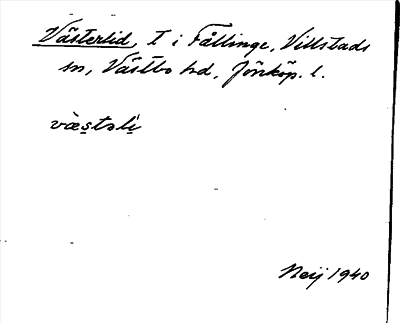 Västerlid, t i Fållinge, Villstads
sn, Västbo hd, Jönköp. l.
væ̀stəlị
Neij 1940